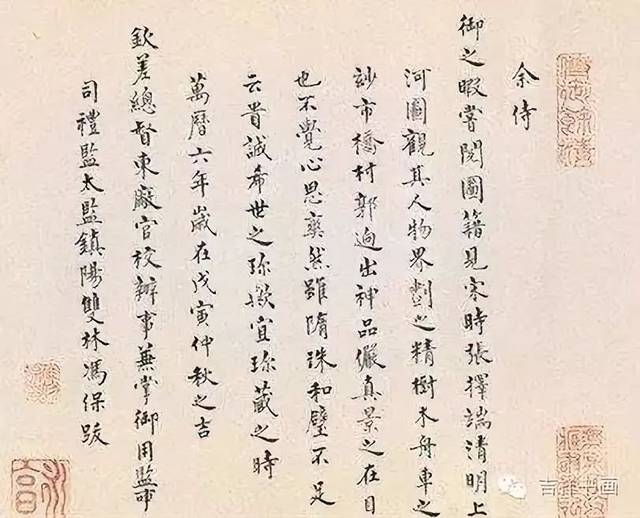 余侍
御之暇嘗閱圖籍見宋時張擇端清明上
河圖觀其人物界劃之精樹木舟車之
玅市橋村郭逈出神品儼真景之在目
也不覺心思爽然雖隋珠和璧不足
云貴誠希世之珎歟宜珎藏之時
萬曆六年歲在戊寅仲秋之吉
欽差總督東廠官校辦事兼掌御用監印
司禮監太監鎮陽雙林馮保跋